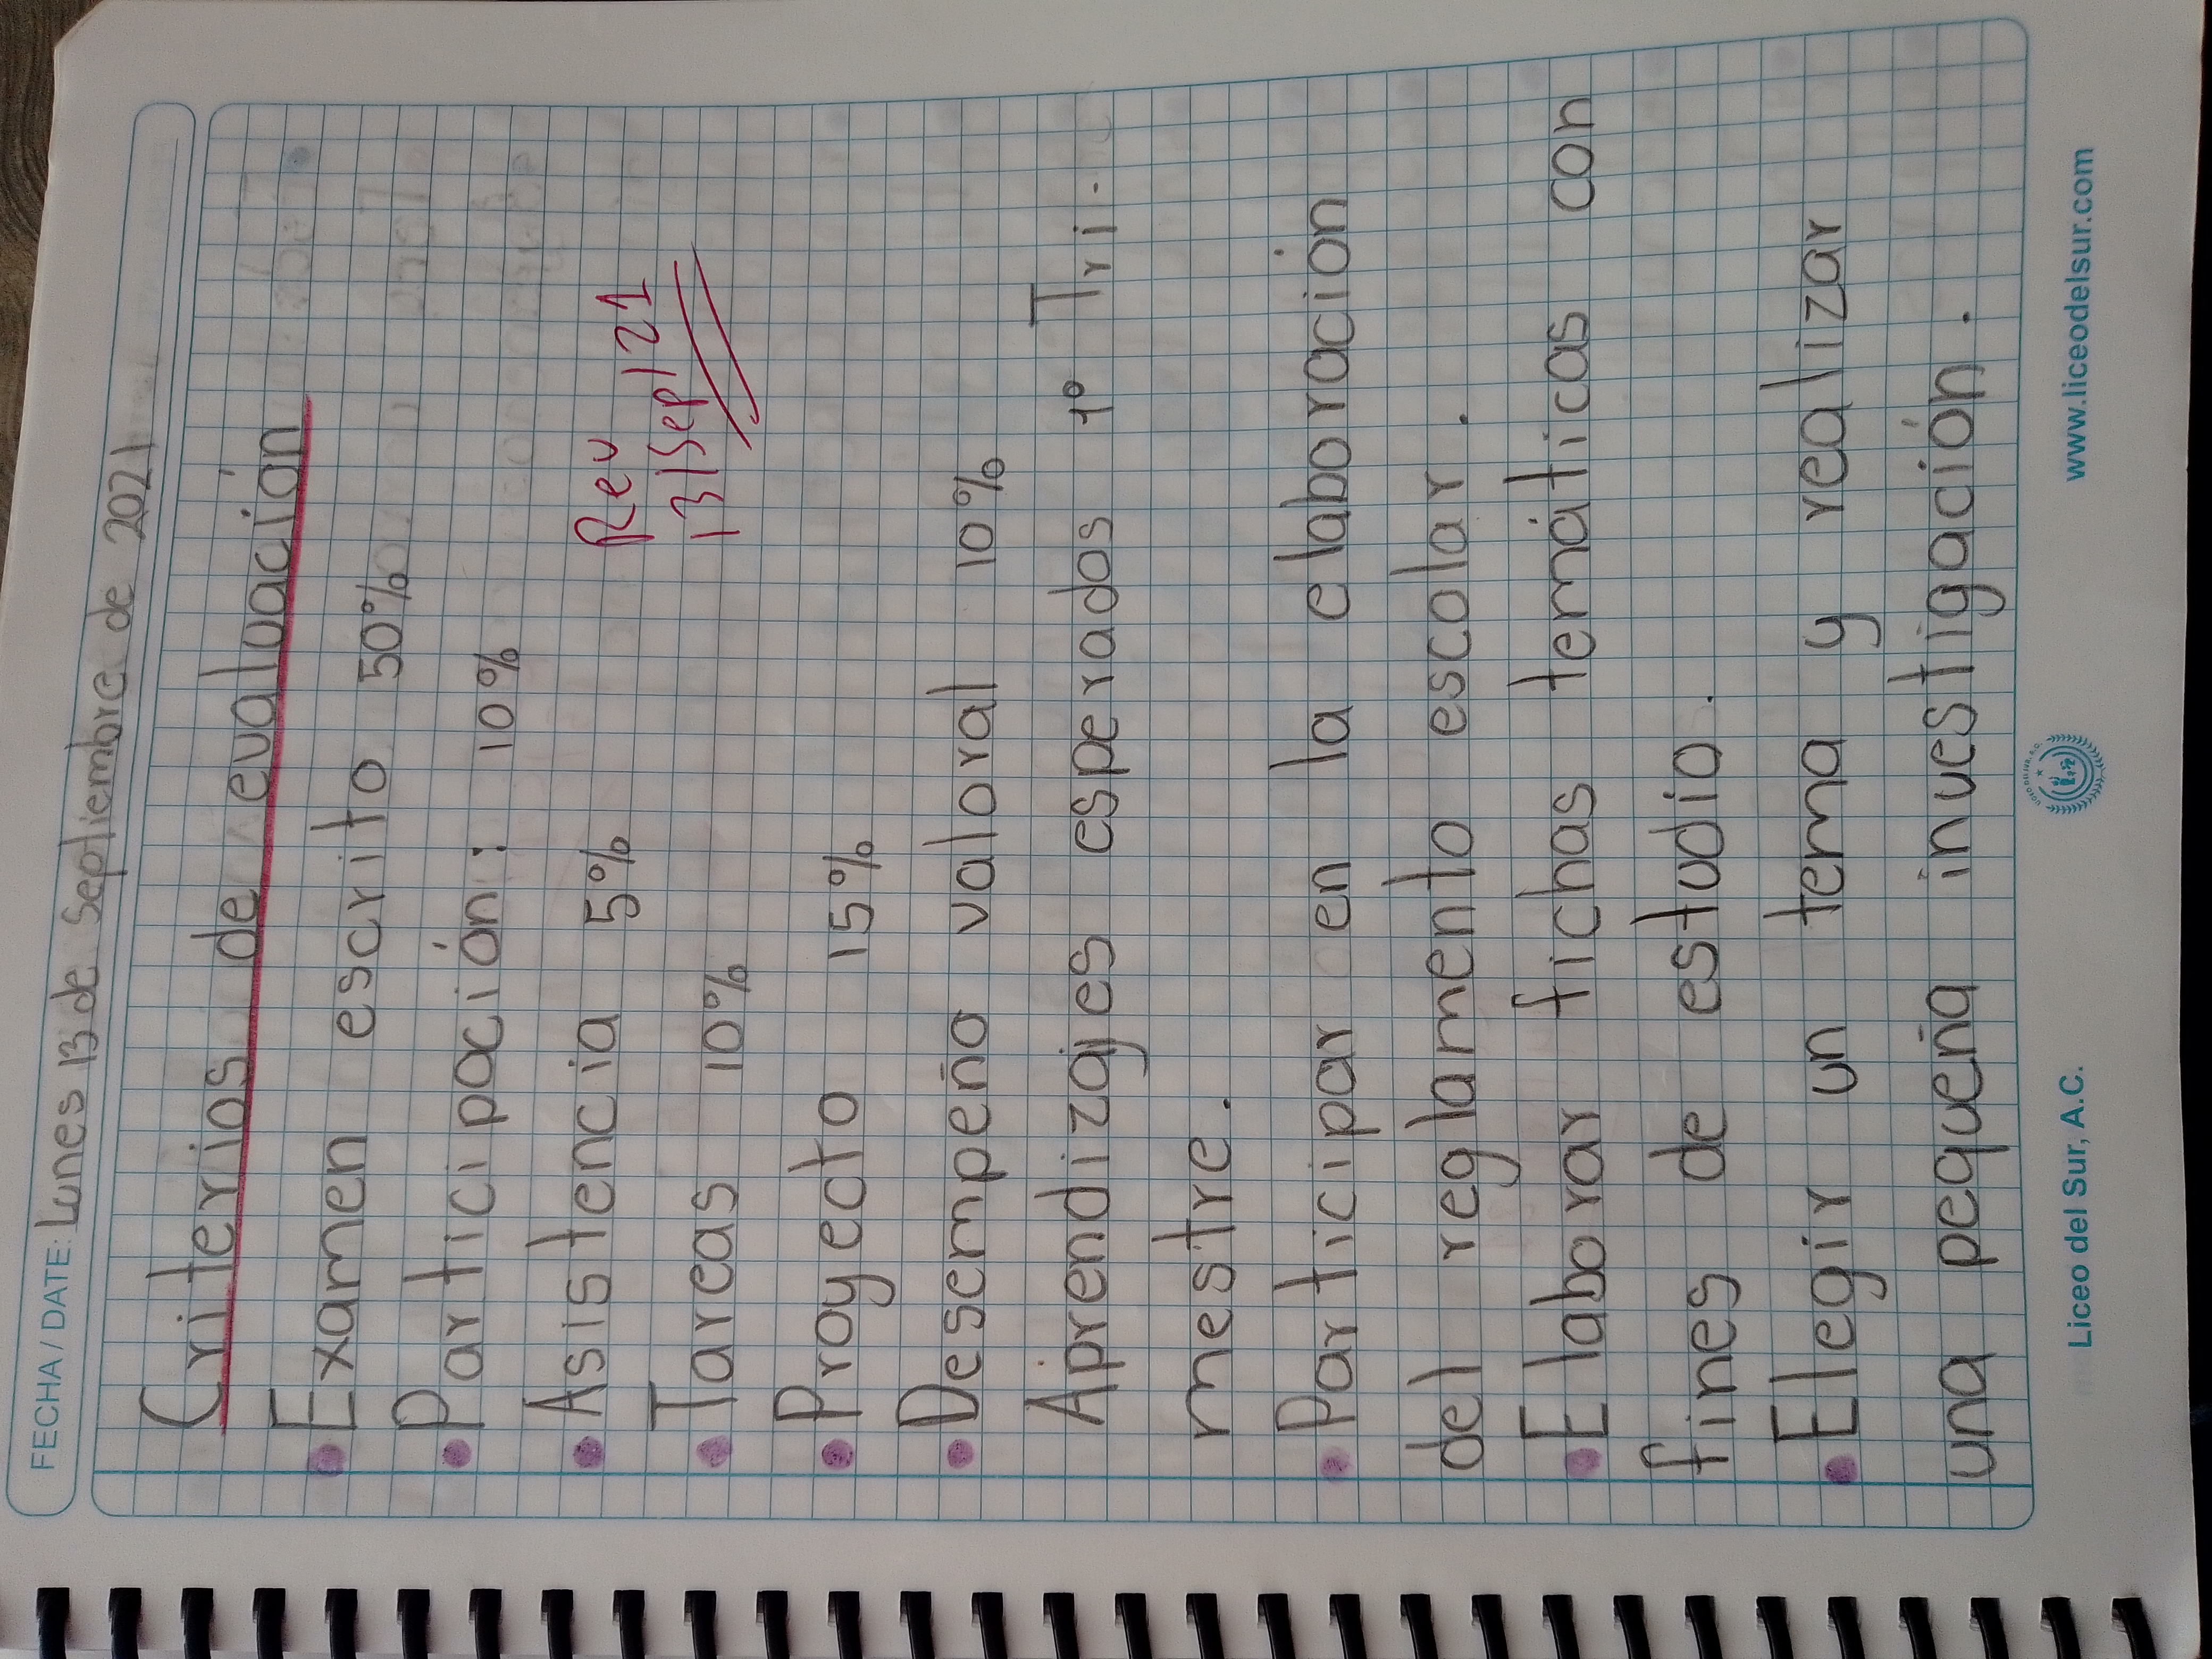 FECHA / DATE: Lunes 13 de Septiembre de 2021
Criterios de evaluación
Examen escrito 50%
Participación: 10%
Asistencia 5%
Rev
13/Sep/21
Tareas 10%
Proyecto 15%
Desempeño valoral 10%
Aprendizajes esperados 1° Tri-
mestre.
Participar en la elaboración
del reglamento escolar.
Elaborar fichas temáticas con
fines de estudio.
Elegir un tema y realizar
una pequeña investigación.
Liceo del Sur, A.C. www.liceodelsur.com